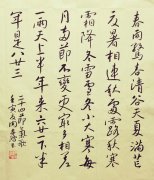 春雨驚春清谷天夏滿芒
夏暑相連秋處露秋寒
霜降冬雪雪冬小大寒每
月兩節不變更最多相差
一兩天上半年來六廿一下半
年是八廿三
二十四節氣歌